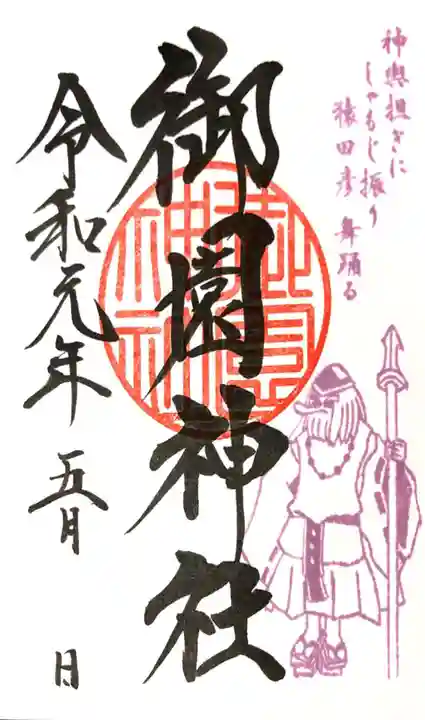 神輿担ぎに
しゃもじ振り
猿田彦 舞踊る
御園神社
令和元年 五月 日